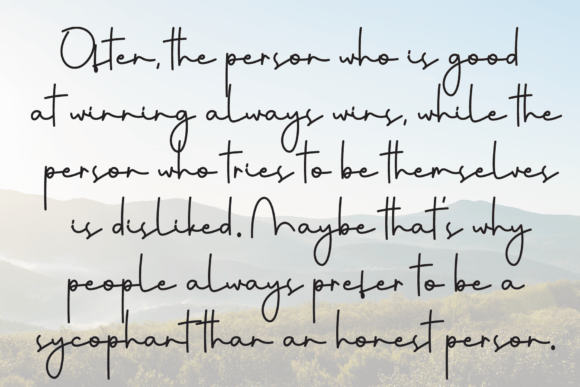 Often, the person who is good
at winning always wins, while the
person who tries to be themselves
is disliked. Maybe that's why
people always prefer to be a
sycophant than an honest person.